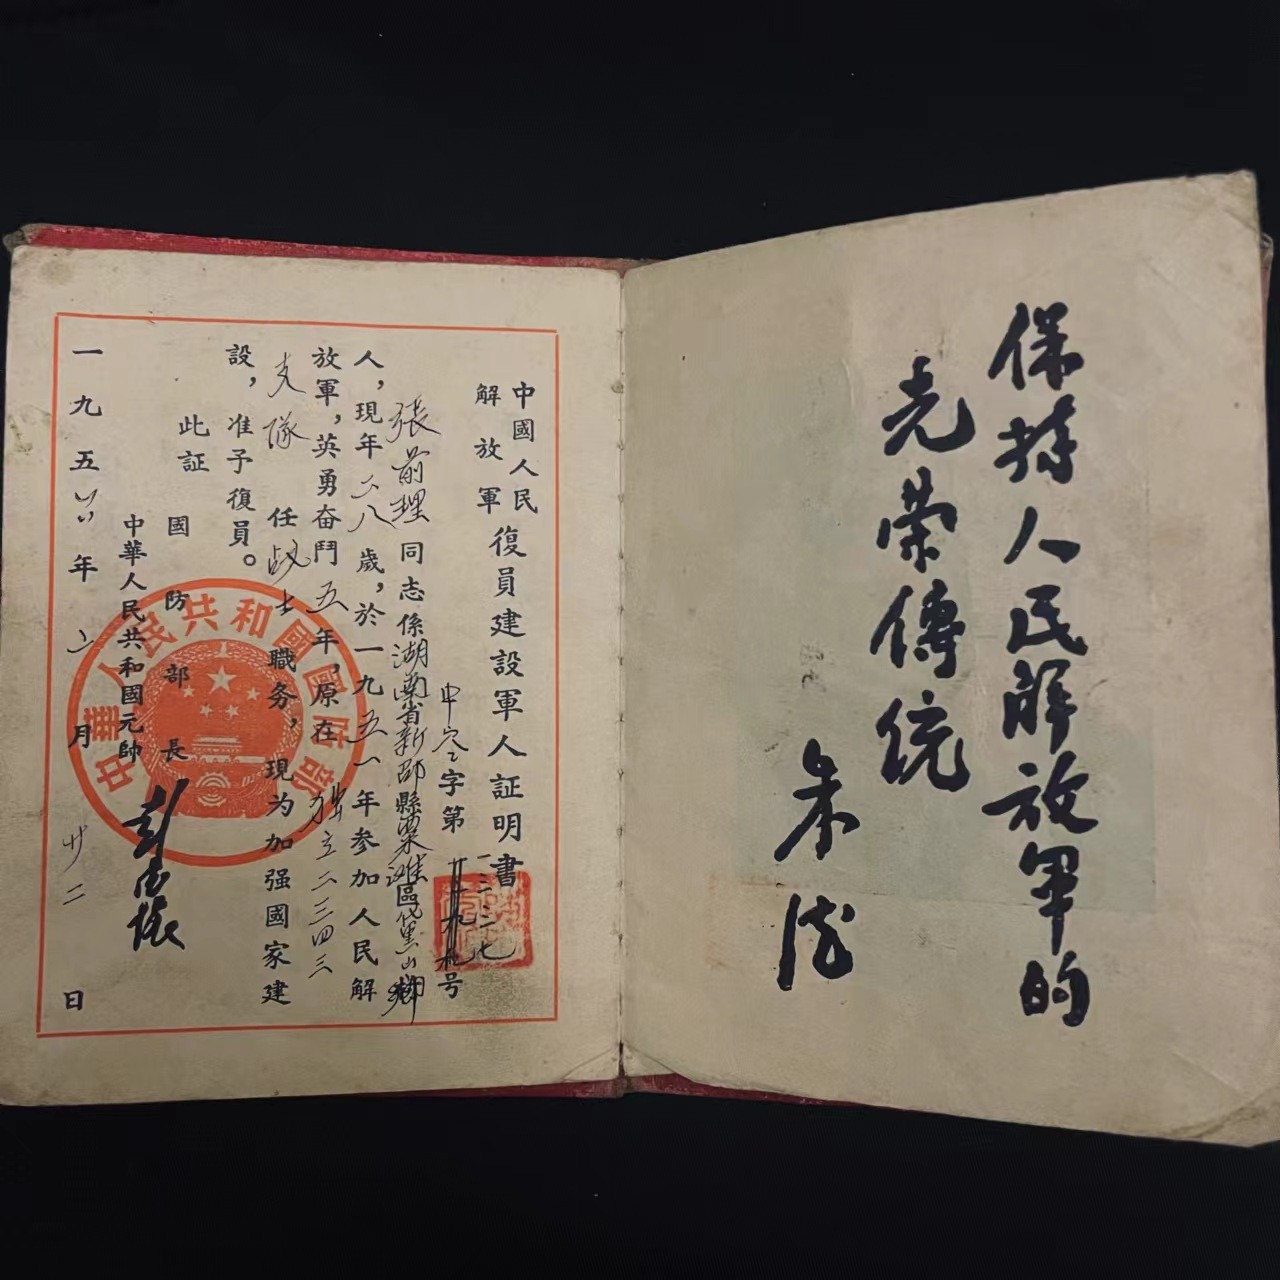 保持人民解放軍的
光榮傳統
朱德
中國人民
解放軍
復員建設軍人証明書
申字第一三二七号
張前理同志係湖南省新邵縣栗灘區岱黑山鄉
人，現年二八歲，於一九五一年參加人民解
放軍，英勇奋鬥五年，原在独立二三四三
支隊任战士職务，現为加强國家建
設，准予復員。
此証
國防部長
中華人民共和國元帥彭德懷
一九五六年二月廿二日
中華人民共和國國防部